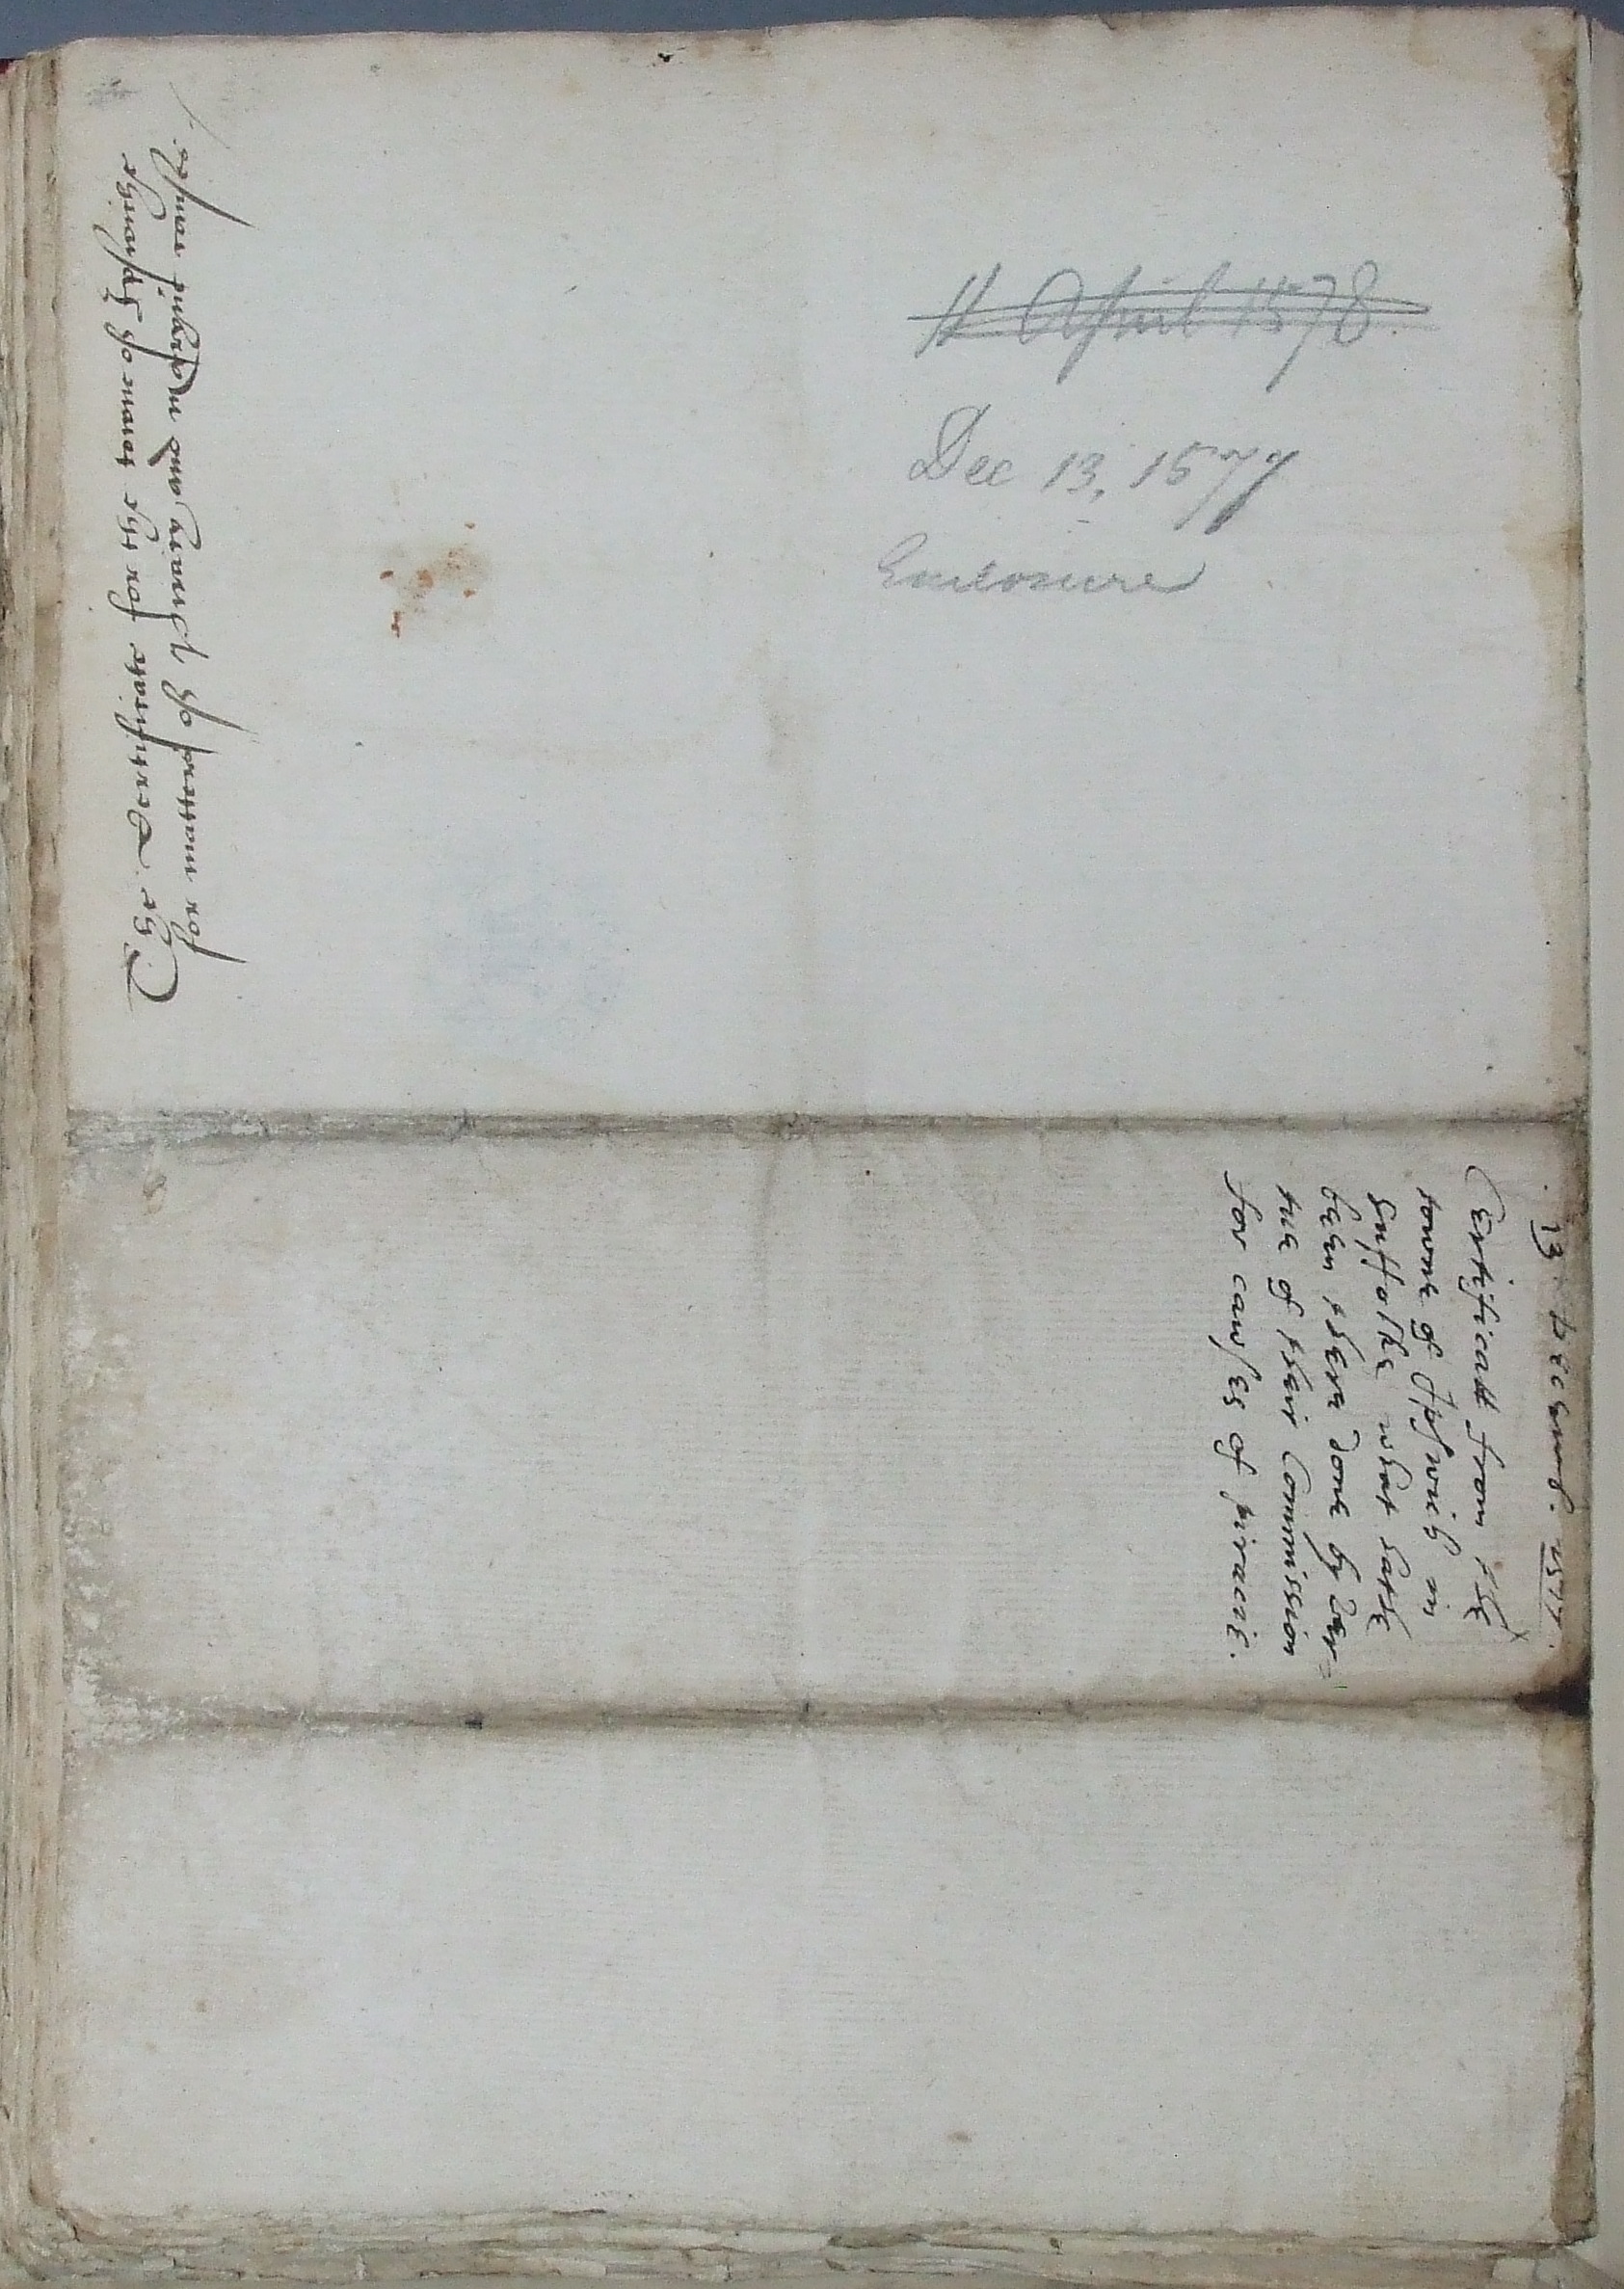 The Certificatte for the towne of Ippswiche
for matters of pyracy and
11 April 1578
Dec 13, 1577
Enclosure
13 Decemb. 1577.
Certificatt from the
towne of Ipswich in
Suffolke what hathe
been there done by ver=
tue of their Commission
for causes of piracie.